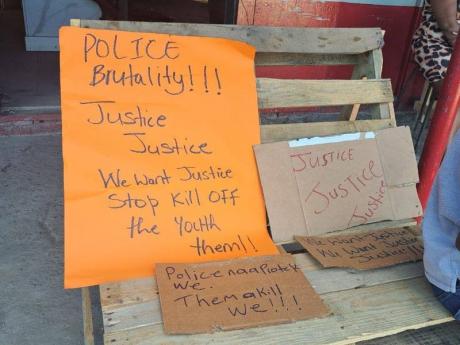 POLICE
Brutality!!!
Justice
Justice
We Want Justice
Stop Kill OFF
the Youth
them!!
JUSTICE
Justice
Justice
We Want Justice
Justice
Police naa Protek
We.
Them a Kill
We!!!